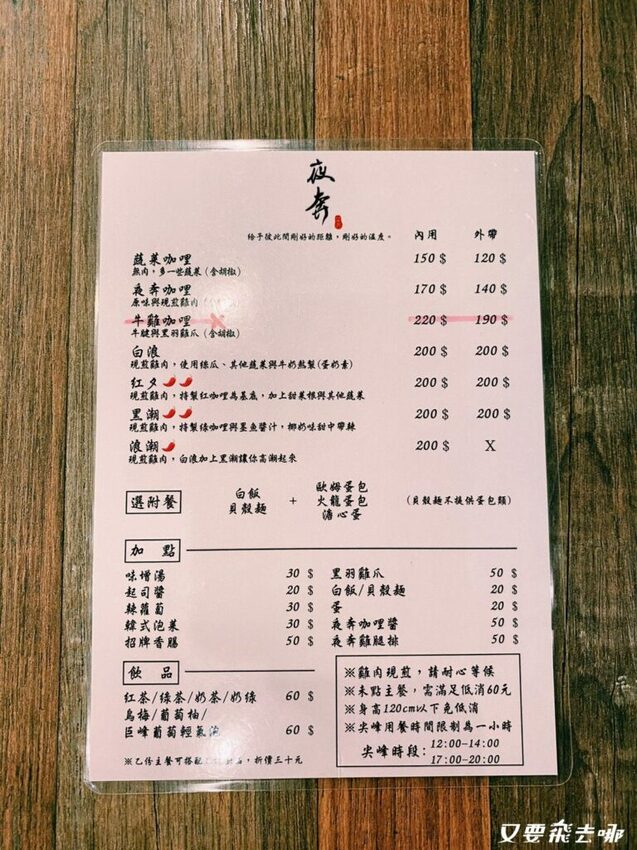 夜奔
給予彼此間剛好的距離，剛好的溫度。 內用 外帶
蔬菜咖哩 150 $ 120 $
無肉，多一些蔬菜(含胡椒)
夜奔咖哩 170 $ 140 $
原味與現煎雞肉
牛雞咖哩 220 $ 190 $
牛腱與黑羽雞爪(含胡椒)
白浪 200 $ 200 $
現煎雞肉，使用絲瓜、其他蔬菜與牛奶熬製(蛋奶素)
紅夕 200 $ 200 $
現煎雞肉，特製紅咖哩為基底，加上甜菜根與其他蔬菜
黑潮 200 $ 200 $
現煎雞肉，特製綠咖哩與墨魚醬汁，椰奶味甜中帶辣
浪潮 200 $ X
現煎雞肉，白浪加上黑潮讓你高潮起來
選附餐
白飯
貝殼麵
+
歐姆蛋包
火龍蛋包
溏心蛋
(貝殼麵不提供蛋包類)
加 點
味增湯 30 $ 黑羽雞爪 50 $
起司醬 20 $ 白飯/貝殼麵 20 $
辣蘿蔔 30 $ 蛋 20 $
韓式泡菜 30 $ 夜奔咖哩醬 50 $
招牌香腸 50 $ 夜奔雞腿排 50 $
飲 品
紅茶/綠茶/奶茶/奶綠 60 $
烏梅/葡萄柚/
巨峰葡萄輕氣泡 60 $
※乙份主餐可搭配 折價三十元
※雞肉現煎，請耐心等候
※未點主餐，需滿足低消60元
※身高120cm以下免低消
※尖峰用餐時間限制為一小時
尖峰時段：12:00-14:00
17:00-20:00
又要飛去哪